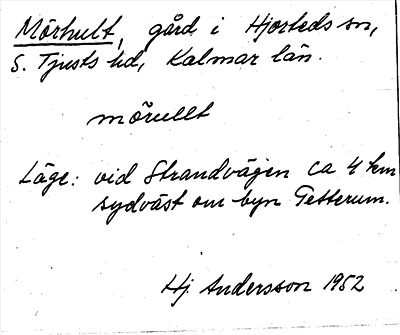 Mörhult, gård i Hjorteds sn,
S. Tjusts hd, Kalmar län.
mörullt
Läge: vid Strandvägen ca 4 km
sydväst om byn Tetterum.
Hj. Andersson 1952